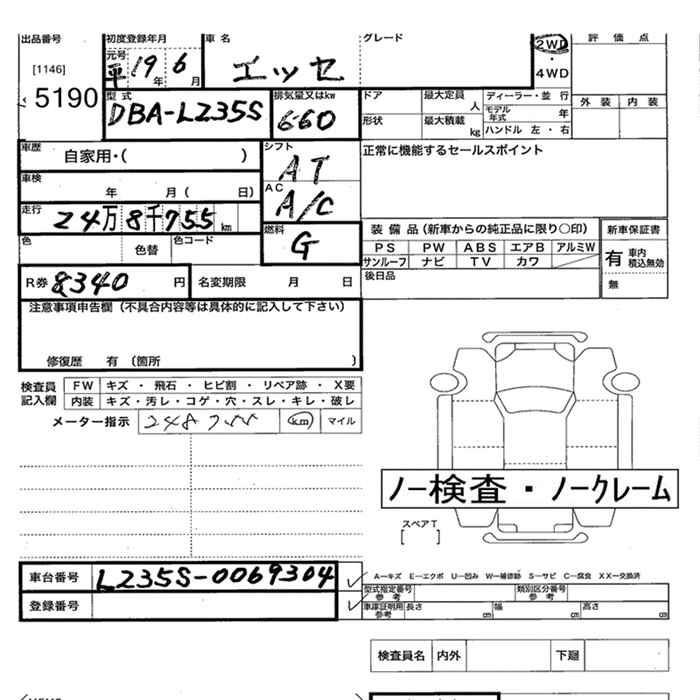 出品番号 初度登録年月 車名 グレード 評価点
[1146] 元号 平 19年 6月 エッセ 2WD・4WD
5190 型式 DBA-L235S 排気量又はkw 660 ドア 最大定員 人 ディーラー・並行 外装 内装
形状 最大積載 kg モデル年式 年 ハンドル 左・右
車歴 自家用・( ) シフト AT 正常に機能するセールスポイント
車検 年 月( 日) AC A/C
走行 24万8千755km 燃料 G 装備品(新車からの純正品に限り○印) 新車保証書
色 色替 色コード PS PW ABS エアB アルミW 有 車内積込無効
サンルーフ ナビ TV カワ 無
R券 8340円 名変期限 月 日 後日品
注意事項申告欄(不具合内容等は具体的に記入して下さい)
修復歴 有(箇所 )
検査員記入欄 FW キズ・飛石・ヒビ割・リペア跡・X要
内装 キズ・汚レ・コゲ・穴・スレ・キレ・破レ
メーター指示 km マイル
ノー検査・ノークレーム
スペアT
[ ]
車台番号 L235S-0069304 A−キズ E−エクボ U−凹み W−補修跡 S−サビ C−腐食 XX−交換済
登録番号 型式指定番号 参考 類別区分番号 参考
車庫証明用 参考 長さ cm 幅 cm 高さ cm
検査員名 内外 下廻